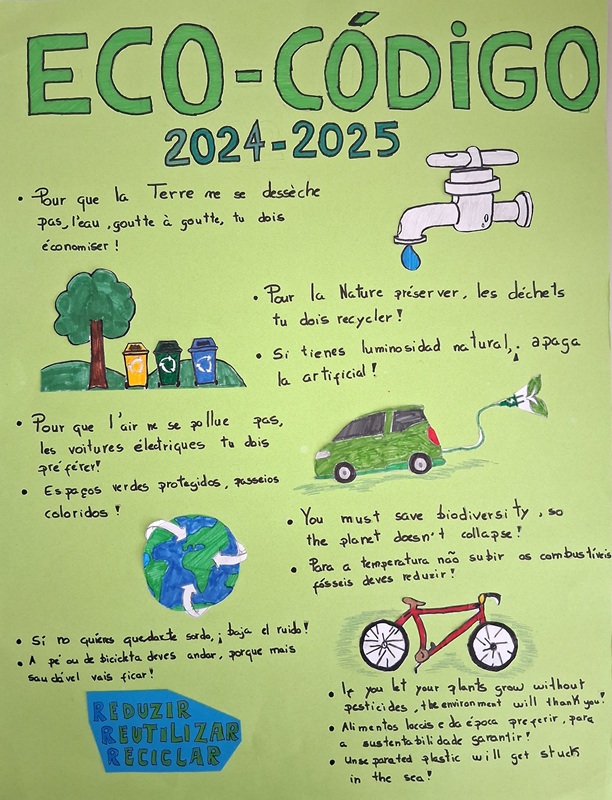 ECO-CÓDIGO
2024-2025
• Pour que la Terre ne se dessèche
pas, l'eau, goutte à goutte, tu dois
économiser !
• Pour la Nature préserver, les déchets
tu dois recycler !
• Si tienes luminosidad natural, ¡ apaga
la artificial !
• Pour que l'air ne se pollue pas,
les voitures électriques tu dois
préférer!
• Espaços verdes protegidos, passeios
coloridos !
• You must save biodiversity, so
the planet doesn't collapse!
• Para a temperatura não subir os combustíveis
fósseis deves reduzir!
• Si no quieres quedarte sordo, ¡ baja el ruido!
• A pé ou de bicicleta deves andar, porque mais
saudável vais ficar!
REDUZIR
REUTILIZAR
RECICLAR
• If you let your plants grow without
pesticides, the environment will thank you!
• Alimentos locais e da época preferir, para
a sustentabilidade garantir!
• Unseparated plastic will get stuck
in the sea!